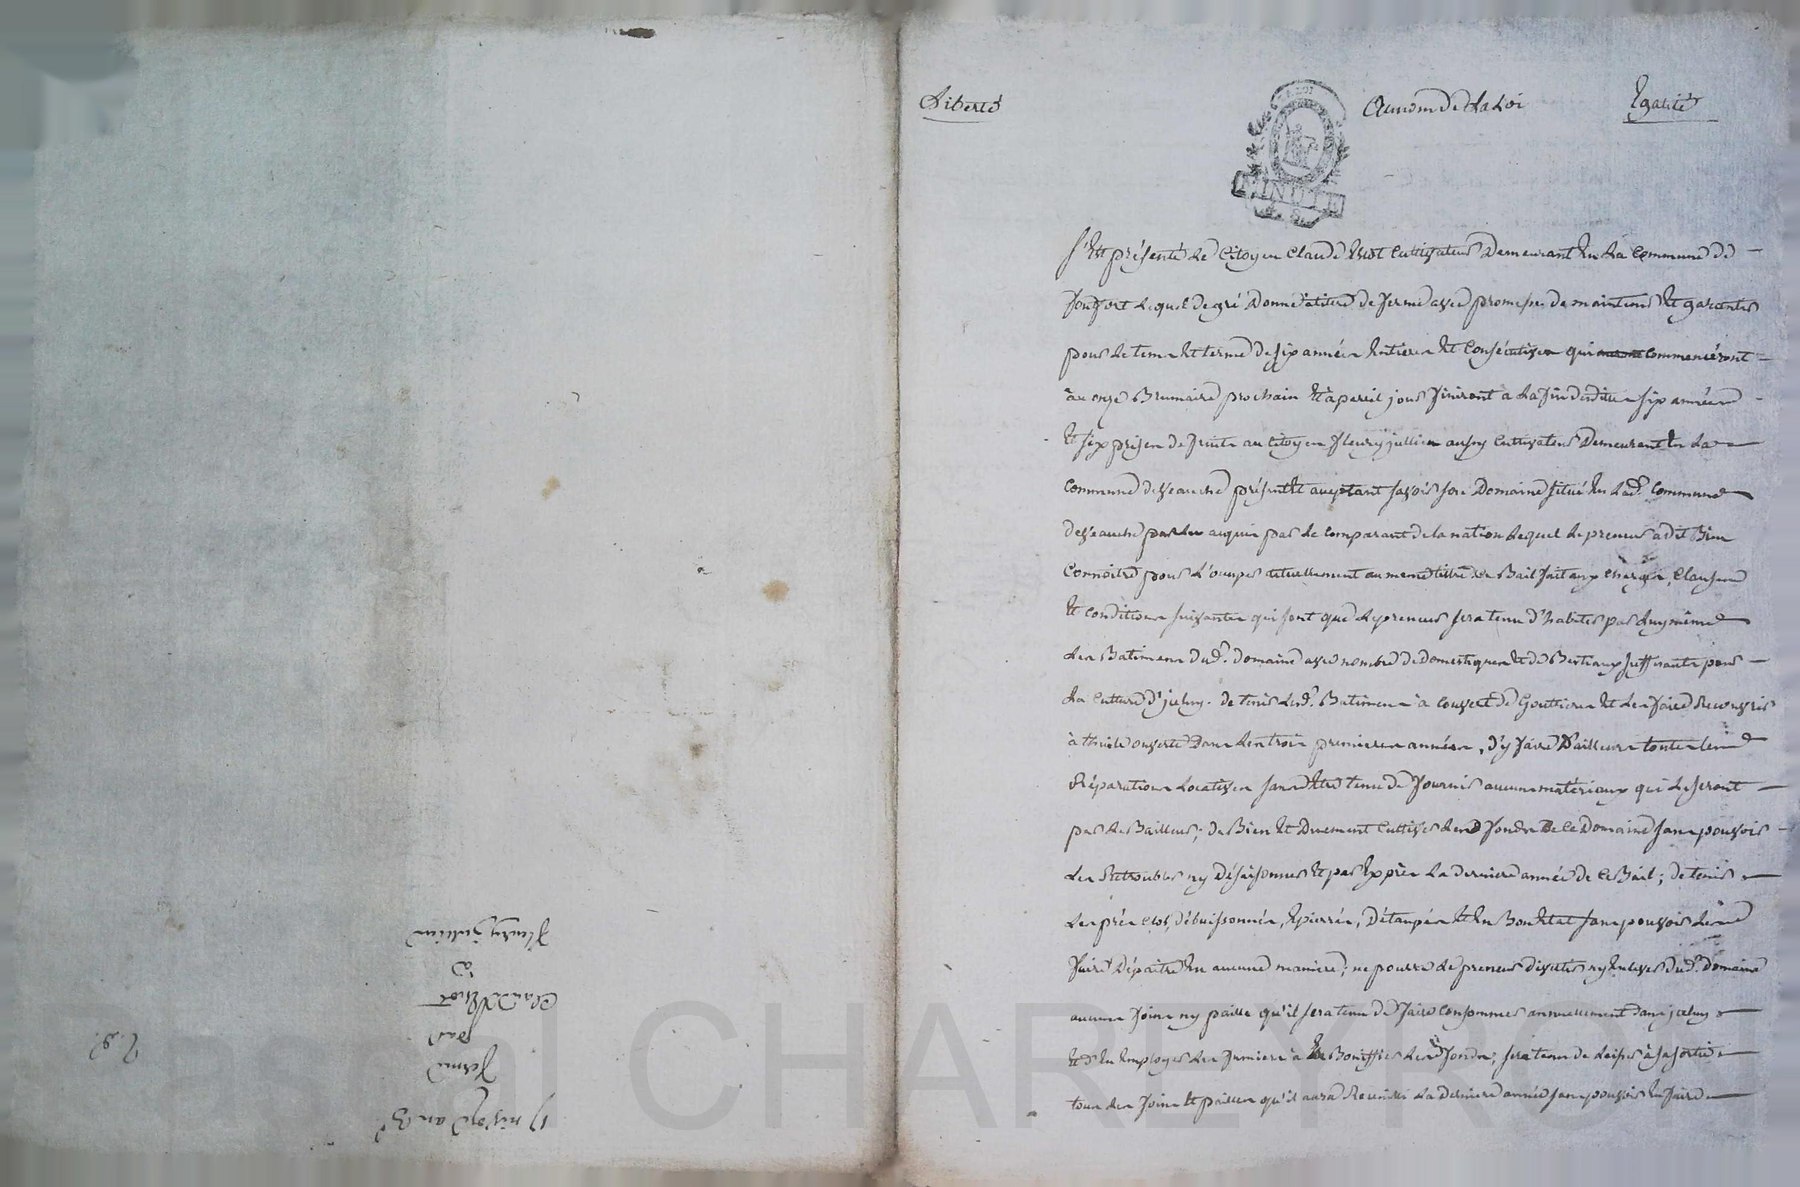 17 nivose an 3e
Ferme
par
Claude Viot
a
Fleury Jullien
Liberté
Au nom de la Loi
Egalité
MINUTE
S'est présenté le Citoyen Claude Viot Cultivateur Demeurant En la Commune de
Fonfort lequel de gré Donne à titre de ferme avec promesse de maintenir Et garentir
pour le tems Et terme de six années Entieres Et Consécutives qui commenceront
au onze Brumaire prochain Et à pareil jour finiront à la fin desdites six années
Et six prises de fruits au Citoyen fleury jullien aussy Cultivateur Demeurant En la
Commune de Veauche présent Et acceptant savoir son Domaine situé En lade. Commune
de Veauche acquis par le Comparant de la nation lequel le preneur a dit Bien
Connoitre pour l'occuper actuellement au meme titre de Bail fait aux charges, Clauses
Et conditions suivantes qui sont que le preneur sera tenu d'habiter par luy même
les Batimens dud. domaine avec nombre de domestiques Et de Bestiaux suffisants pour
la Culture d'iceluy. de tenir lesd. Batimens à couvert de Gouttieres Et les faire Recouvrir
à thuile ouverte Dans les trois premieres années, d'y faire D'ailleurs toutes les
Réparations locatives sans Etre tenu de fournir aucuns matériaux qui le seront
par le Bailleur; de Bien Et Duement Cultiver les fonds De ce Domaine sans pouvoir
les Retroubler ny Désaisonner Et par Exprès la derniere année de ce Bail; de tenir
les prés clos, débuissonnés, Epierrés, Détaupés Et En Bon Etat sans pouvoir les
faire Dépaitre En aucune maniere; ne pourra le preneur divertir ny Enlever dud. Domaine
aucuns foins ny paille qu'il sera tenu de faire Consommer annuellement dans iceluy
Et d'En Employer les fumiers à Bonniffier lesd. fonds; sera tenu de laisser à sa sortie
tous les foins Et pailles qu'il aura Recueilli la Derniere année sans pouvoir En faire